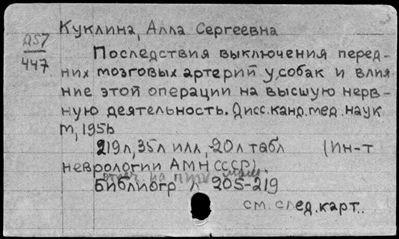 Куклина, Алла Сергеевна
Д57
447
Последствия выключения перед-
них мозговых артерий у собак и влия
ние этой операции на высшую нерв-
ную деятельность. Дисс. канд. мед. наук
М, 1956
219 л, 35 л илл, 20 л табл (Ин-т
неврологии АМН СССР).
Библиогр л 205-219
см. след. карт.